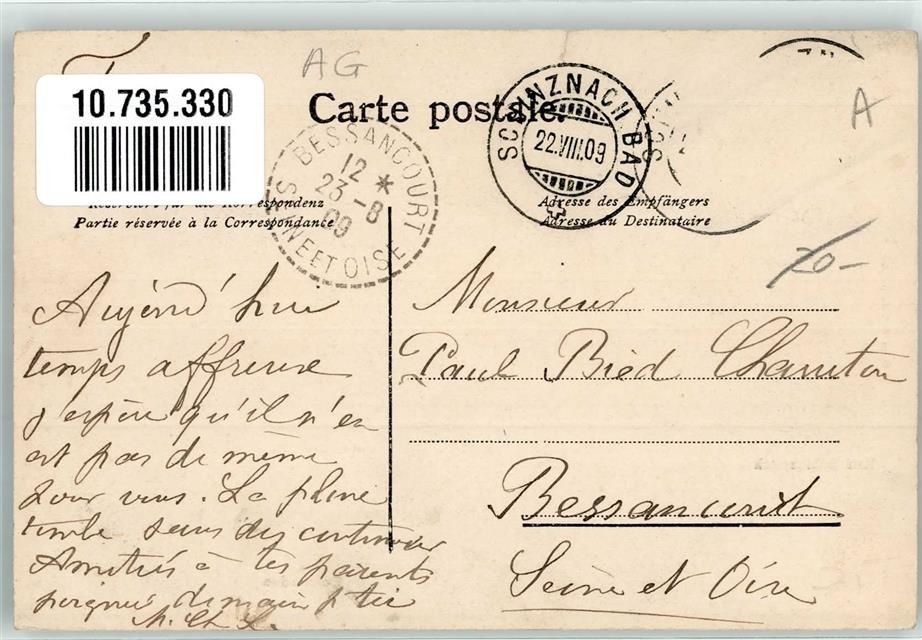 AG
10.735.330
Carte postale.
SCHINZNACH BAD
22.VIII.09
BESSANCOURT
12
23-8
09
SEINE ET OISE
A
Korrespondenz
Partie réservée à la Correspondance
Adresse des Empfängers
Adresse du Destinataire
20-
Aujourd'hui
temps affreux
j'espère qu'il n'en
est pas de même
pour vous. La pluie
tombe sans discontinuer
Amitiés à tes parents
poignée de main p toi
M. Ch
Monsieur
Paul Bied Charreton
Bessancourt
Seine et Oise